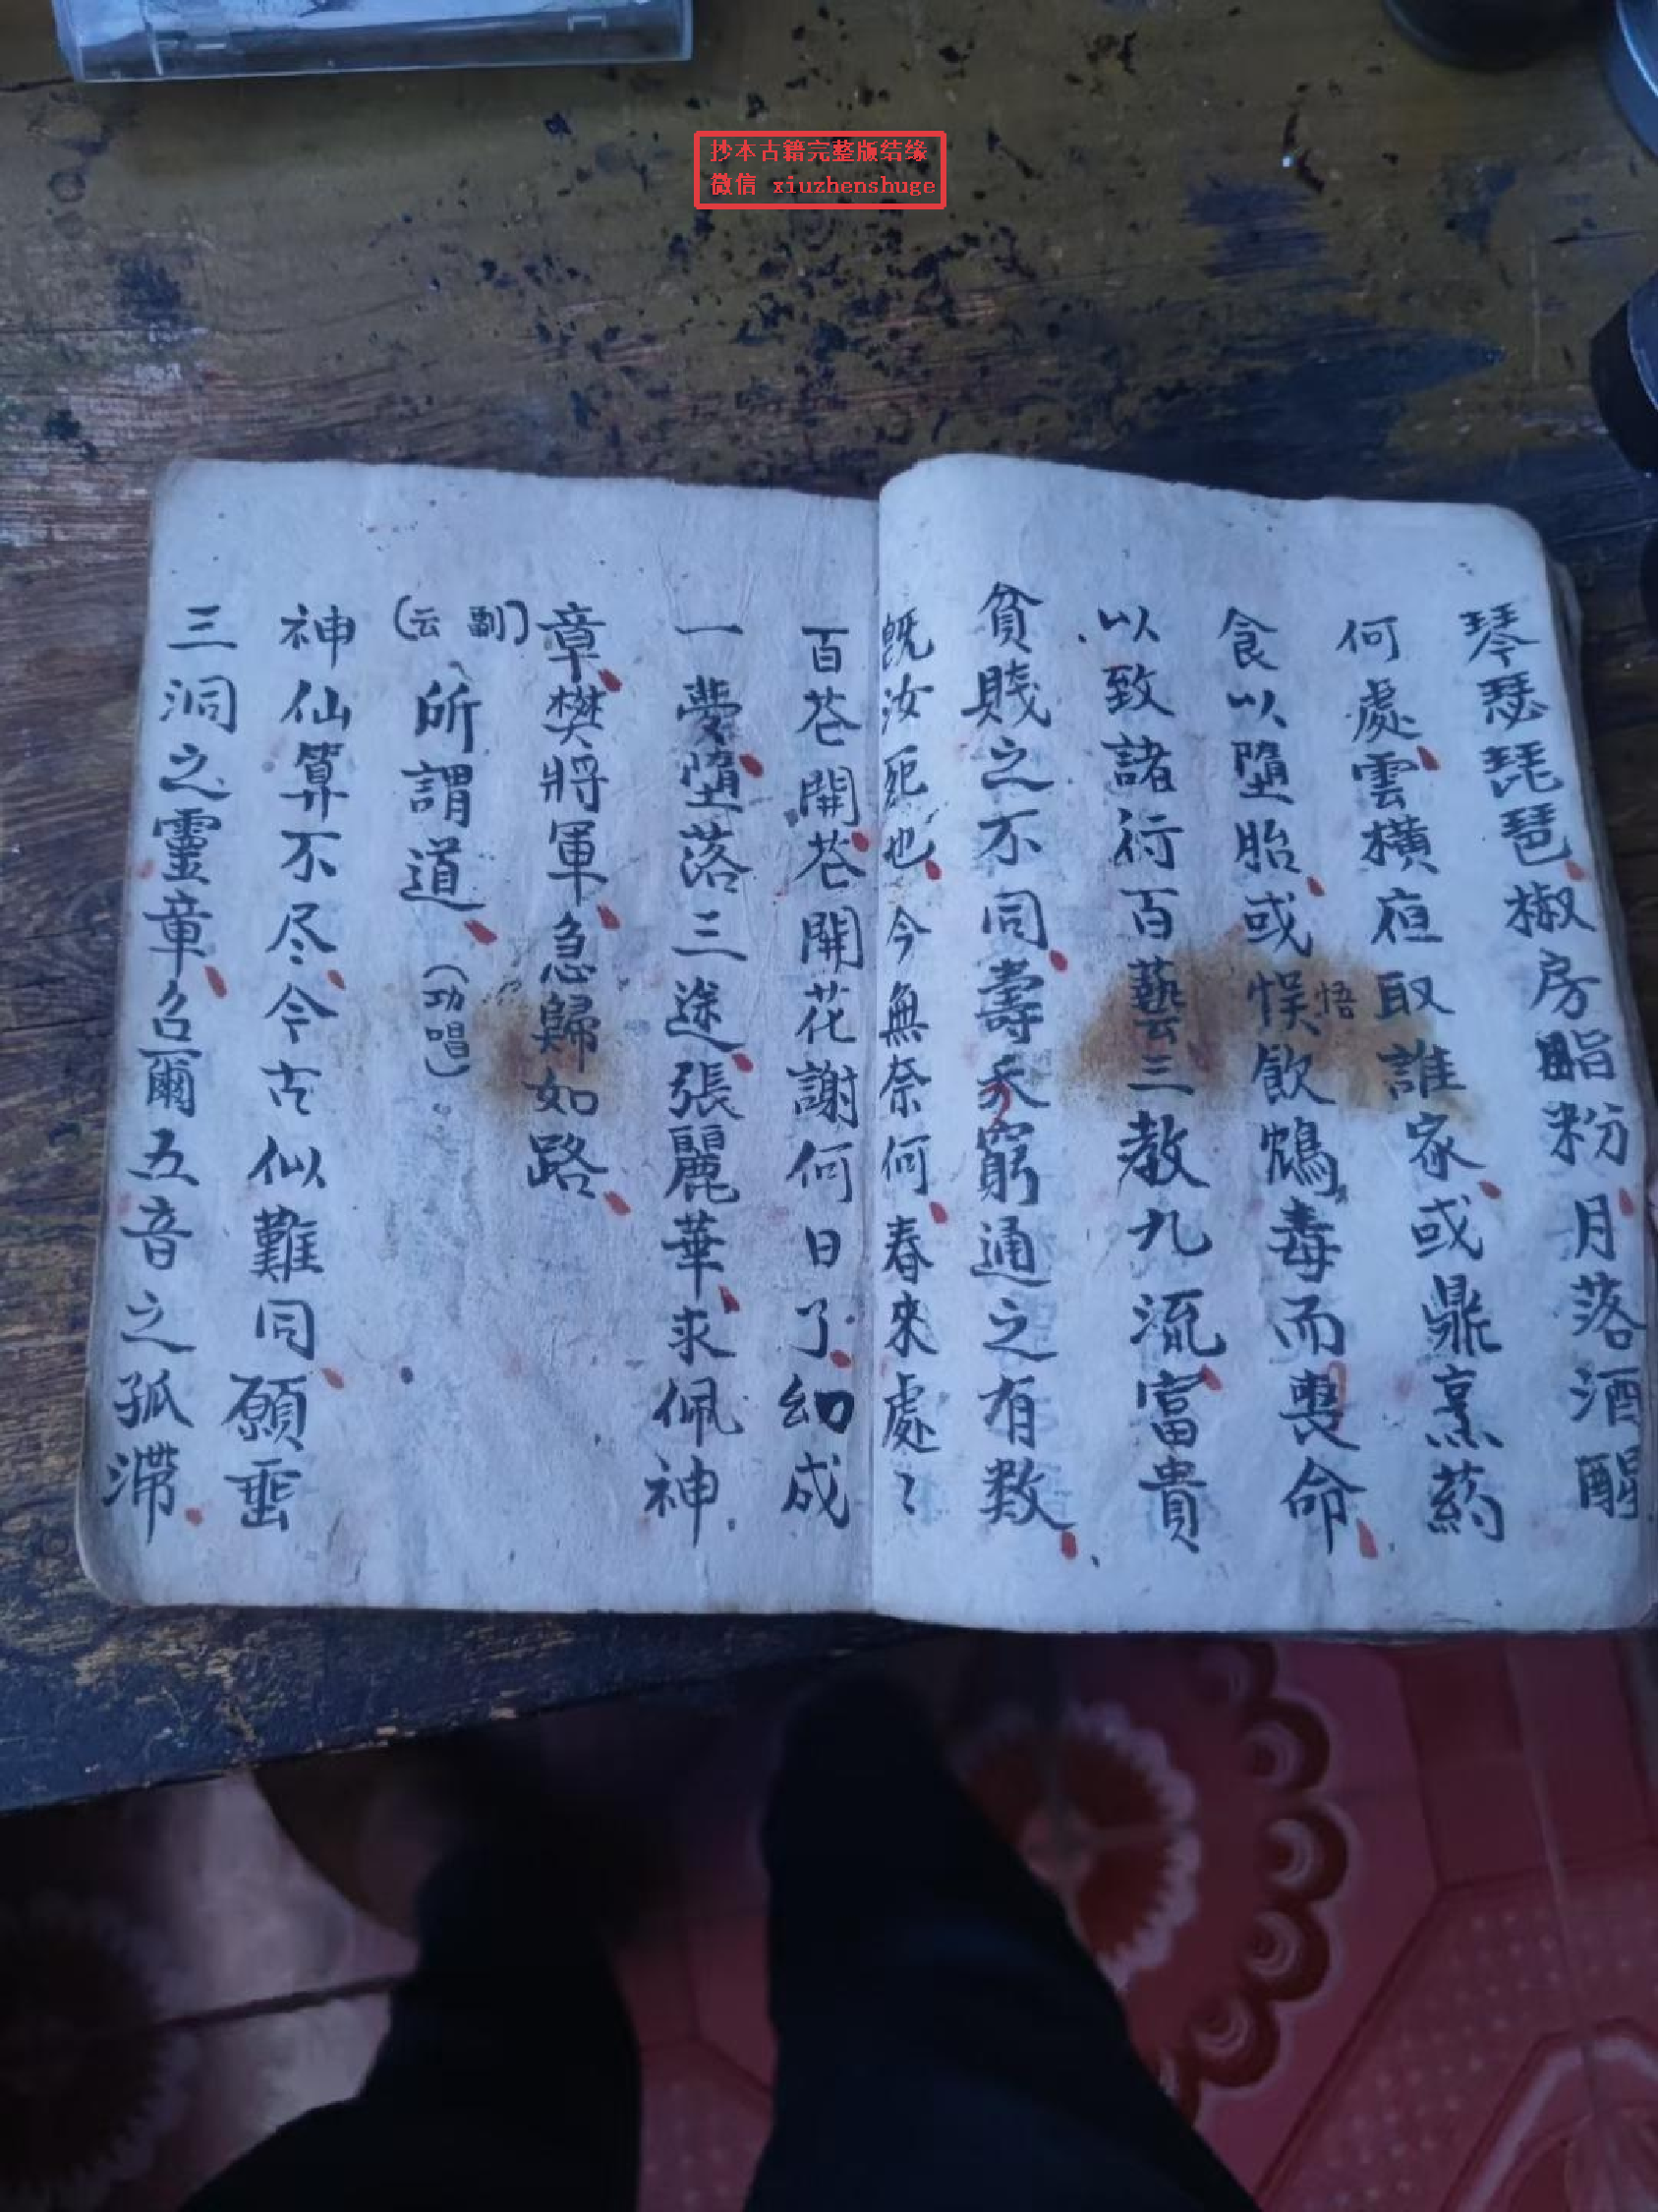 抄本古籍完整版结缘
微信 xiuzhenshuge
琴瑟琵琶椒房脂粉月落酒醒
何處雲橫夜取誰家或鼎烹药
食以墮胎或悮悟飲鴆毒而喪命
以致諸行百藝三教九流富貴
貧賤之不同壽夭窮通之有数
既汝死也今無奈何春來處々
百芲開芲開花謝何日了幻成
一夢墮落三途張麗華求佩神
章樊將軍急歸如路
(副云)所謂道(功唱)
神仙算不尽今古似難同願垂
三洞之靈章召爾五音之孤滞